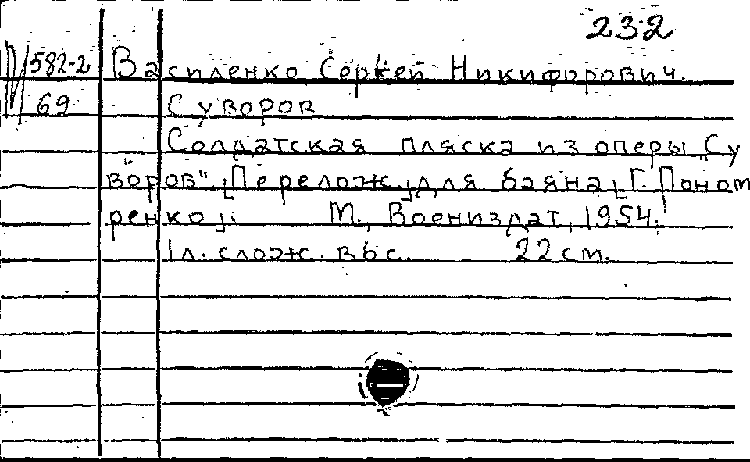 232
582-2 Василенко Сергей Никифорович.
69 Суворов
Солдатская пляска из оперы „Су
воров" [Перелож. для баяна] Г. Поном
ренко]. М., Воениздат, 1954.
1 л. слож. в 6 с. 22 см.